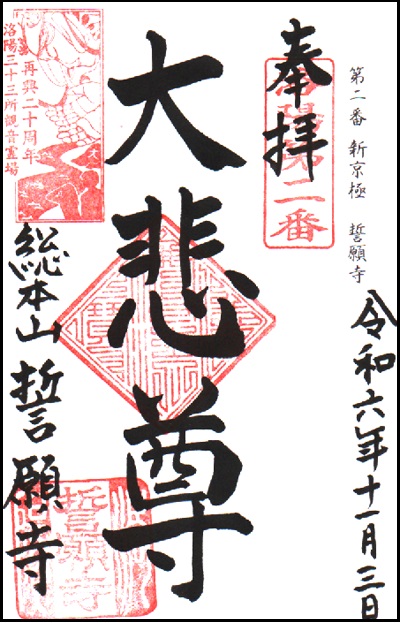 第二番 新京極 誓願寺
令和六年十一月三日
奉拝
洛陽第二番
大悲尊
再興二十周年
洛陽三十三所観音霊場
総本山 誓願寺
誓願寺